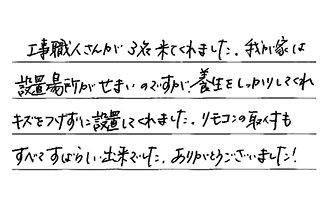 工事職人さんが3名来てくれました。我が家は
設置場所がせまいのですが養生をしっかりしてくれ
キズをつけずに設置してくれました。リモコンの取付も
すべてすばらしい出来でした。ありがとうございました!